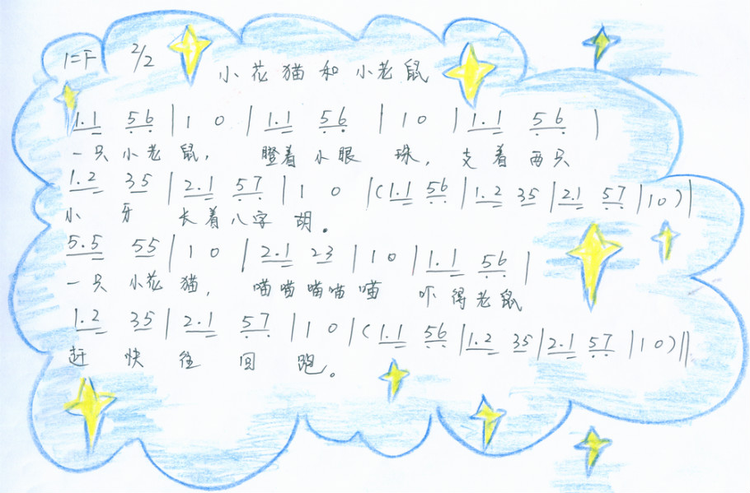 1=F 2/2
小花猫和小老鼠
1.1 56 | 1 0 | 1.1 56 | 1 0 | 1.1 56 |
一只小老鼠， 瞪着小眼珠， 支着两只
1.2 35 | 2.1 57 | 1 0 |(1.1 56 | 1.2 35 | 2.1 57 | 1 0)|
小牙 长着八字胡。
5.5 55 | 1 0 | 2.1 23 | 1 0 | 1.1 56 |
一只小花猫， 喵喵喵喵喵 吓得老鼠
1.2 35 | 2.1 57 | 1 0 |(1.1 56 | 1.2 35 | 2.1 57 | 1 0)||
赶快往回跑。